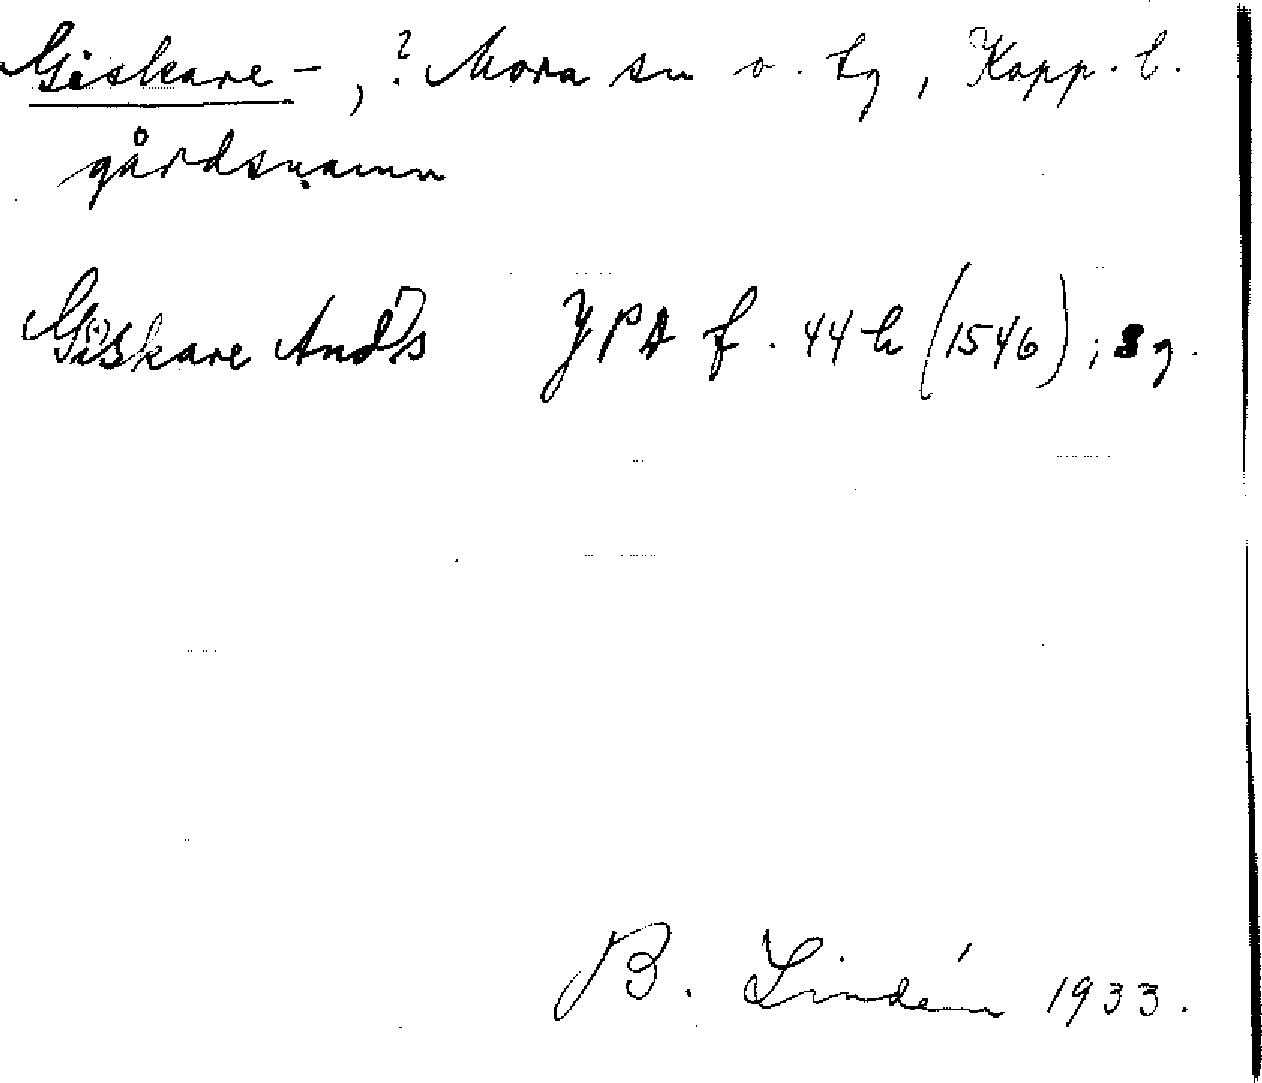 Giskare-, ? Mora sn o. tg, Kopp. l.
gårdsnamn
Giskare And's JPA f. 44 b (1546); sg.
B. Lindén 1933.